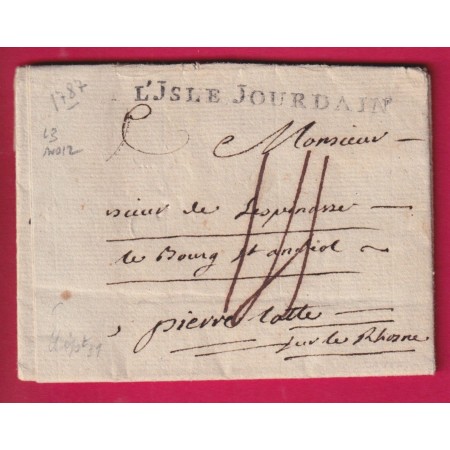 1787
L'JSLE JOURDAIN
Monsieur
sieur de Lespinasse
le Bourg St andiol
pierre latte
sur le Rhosne